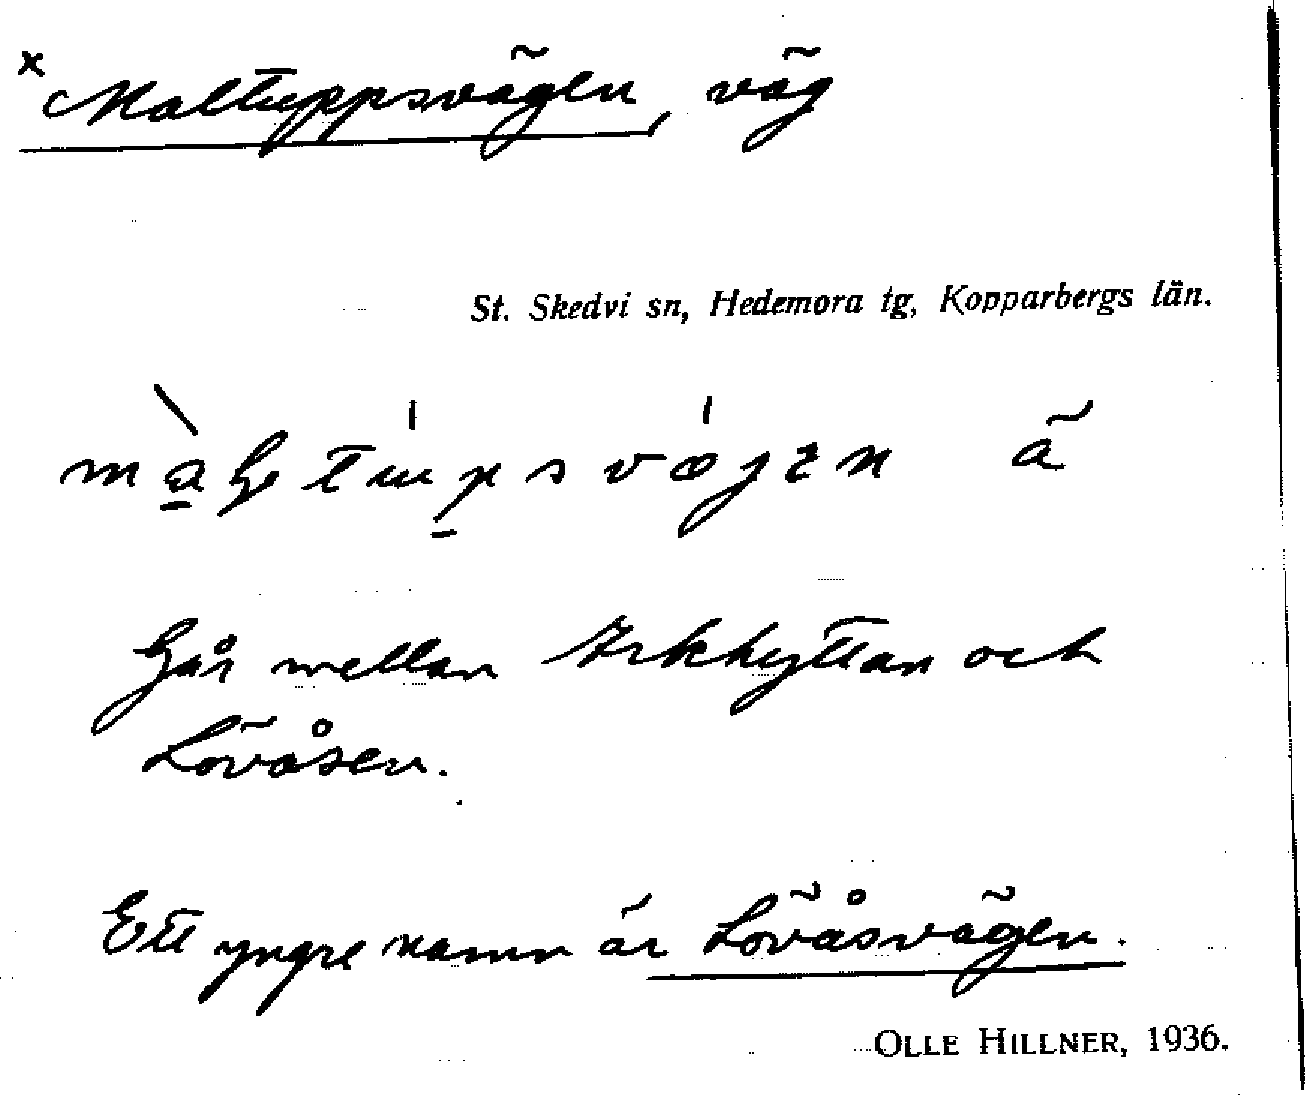 x Maltuppsvägen, väg
St. Skedvi sn, Hedemora tg, Kopparbergs län.
ä
Går mellan Arkhyttan och
Lövåsen.
Ett yngre namn är Lövåsvägen.
OLLE HILLNER, 1936.